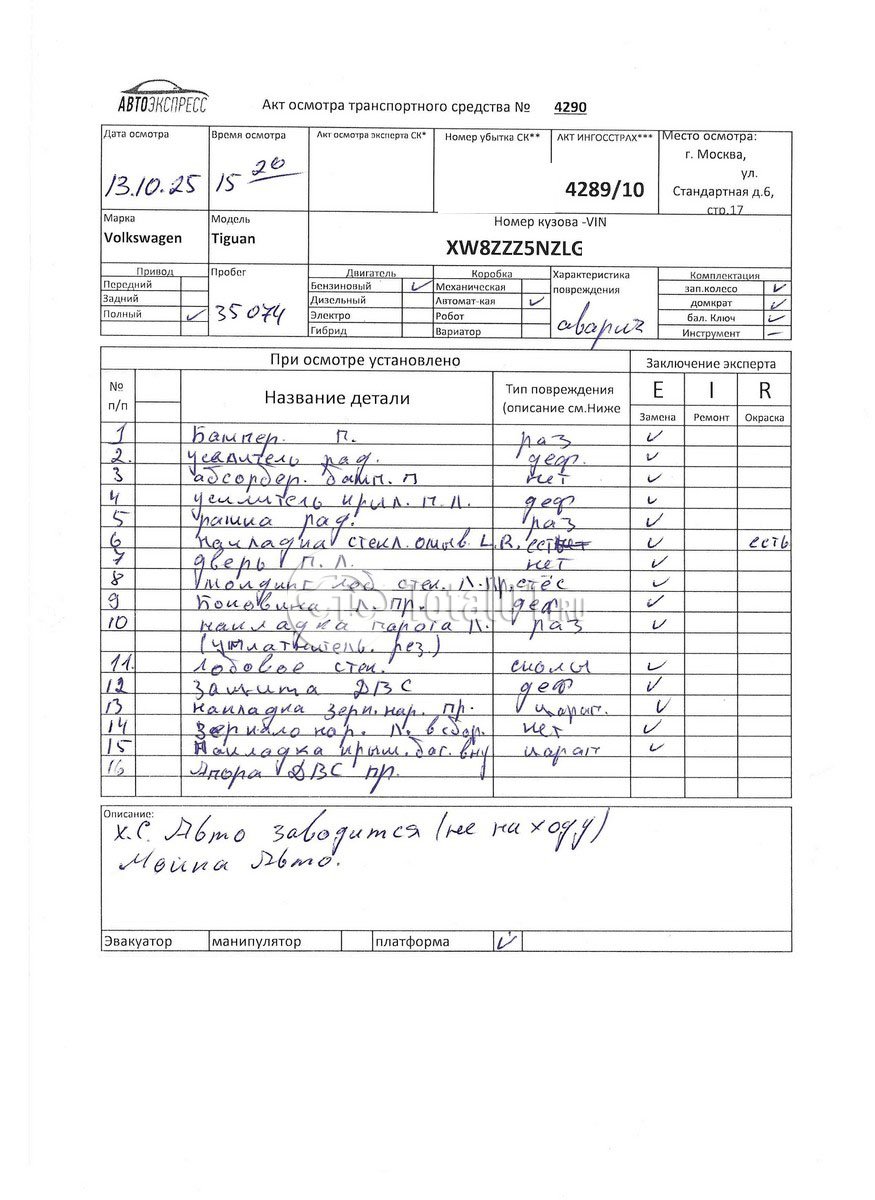 АВТОЭКСПРЕСС
Акт осмотра транспортного средства № 4290
Дата осмотра Время осмотра Акт осмотра эксперта СК* Номер убытка СК** АКТ ИНГОССТРАХ*** Место осмотра:
г. Москва,
ул.
13.10.25 15 20 4289/10 Стандартная д.6,
стр.17
Марка Модель Номер кузова -VIN
Volkswagen Tiguan XW8ZZZ5NZLG
Привод Пробег Двигатель Коробка Характеристика Комплектация
Передний Бензиновый ✓ Механическая повреждения зап.колесо ✓
Задний Дизельный Автомат-кая ✓ домкрат ✓
Полный ✓ 35074 Электро Робот авария бал. Ключ ✓
Гибрид Вариатор Инструмент –
При осмотре установлено Заключение эксперта
№ п/п Название детали Тип повреждения (описание см.Ниже E I R
Замена Ремонт Окраска
1 Бампер. п. раз ✓
2. усилитель рад. деф. ✓
3 абсорбер. бамп. п нет ✓
4 усилитель крыл. п.л. деф ✓
5 рамка рад. раз ✓
6 накладка стекл. омыв. L.R. есть нет ✓ есть
7 дверь п. л. нет ✓
8 молдинг лоб стек. л. пр. стёс ✓
9 Боковина л. пр. деф ✓
10 накладка порога л. раз ✓
(уплатнитель. рез.)
11. Лобовое стек. сколы ✓
12 Защита ДВС деф ✓
13 накладка зерк. нар. пр. царап. ✓
14 Зеркало нар. л. в сбор. нет ✓
15 Накладка крыш. баг. вну царап ✓
16 Апора ДВС пр.
Описание:
х.с. Авто заводится (не на ходу)
Мойка Авто.
Эвакуатор манипулятор платформа ✓
TotalU1.RU